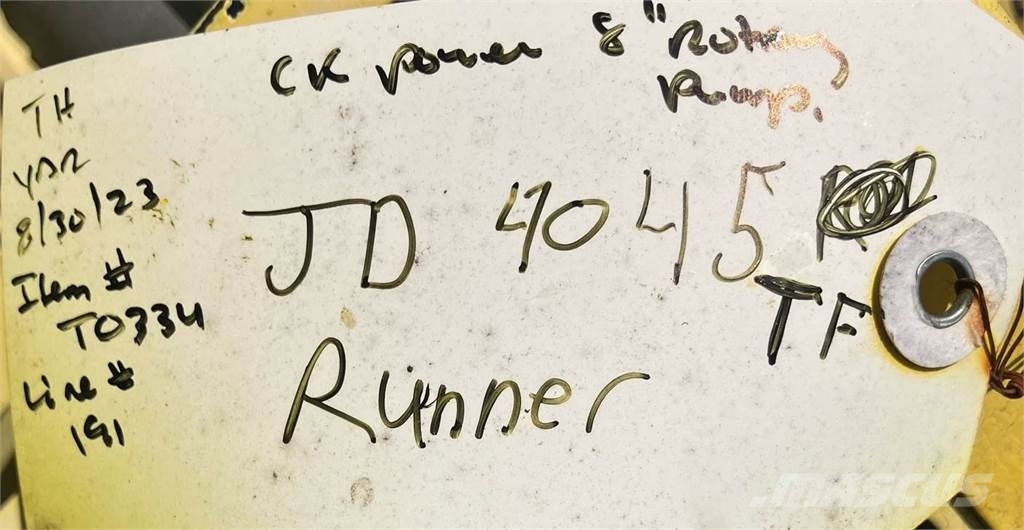 CK Power 8" Rotary
Pump.
TH
YDR
8/30/23
Item #
T0334
Line #
191
JD 4045
TF
Runner
MASCUS